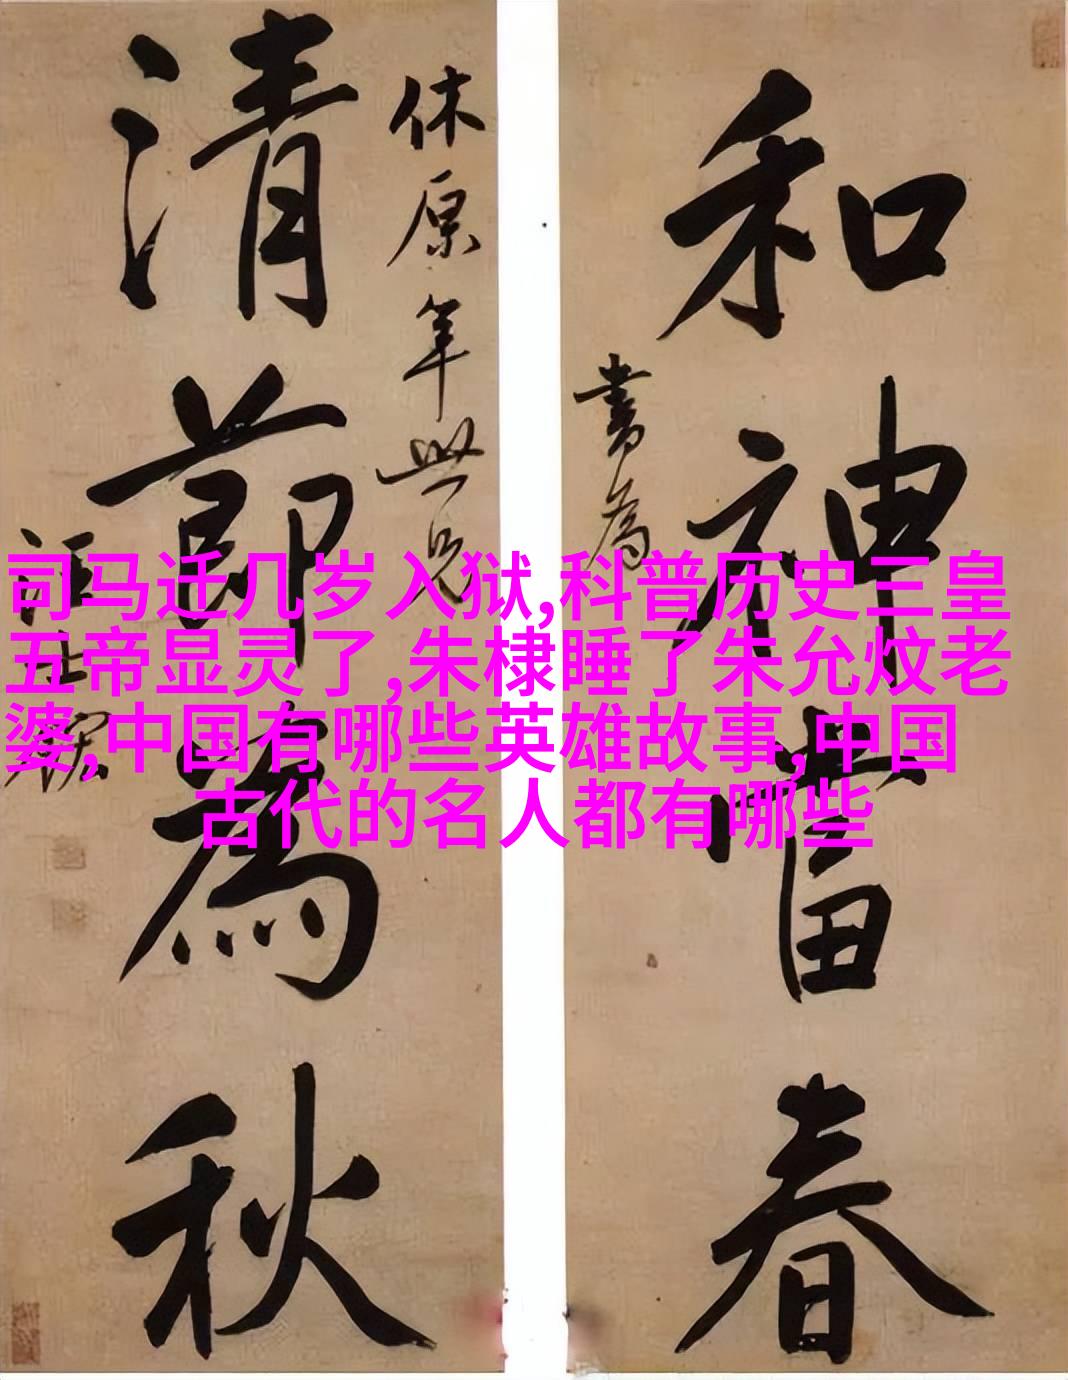 和神當春
書為
休原年世兄
清節為秋
汪士鋐
司马迁几岁入狱,科普历史三皇
五帝显灵了,朱棣睡了朱允炆老
婆,中国有哪些英雄故事,中国
古代的名人都有哪些